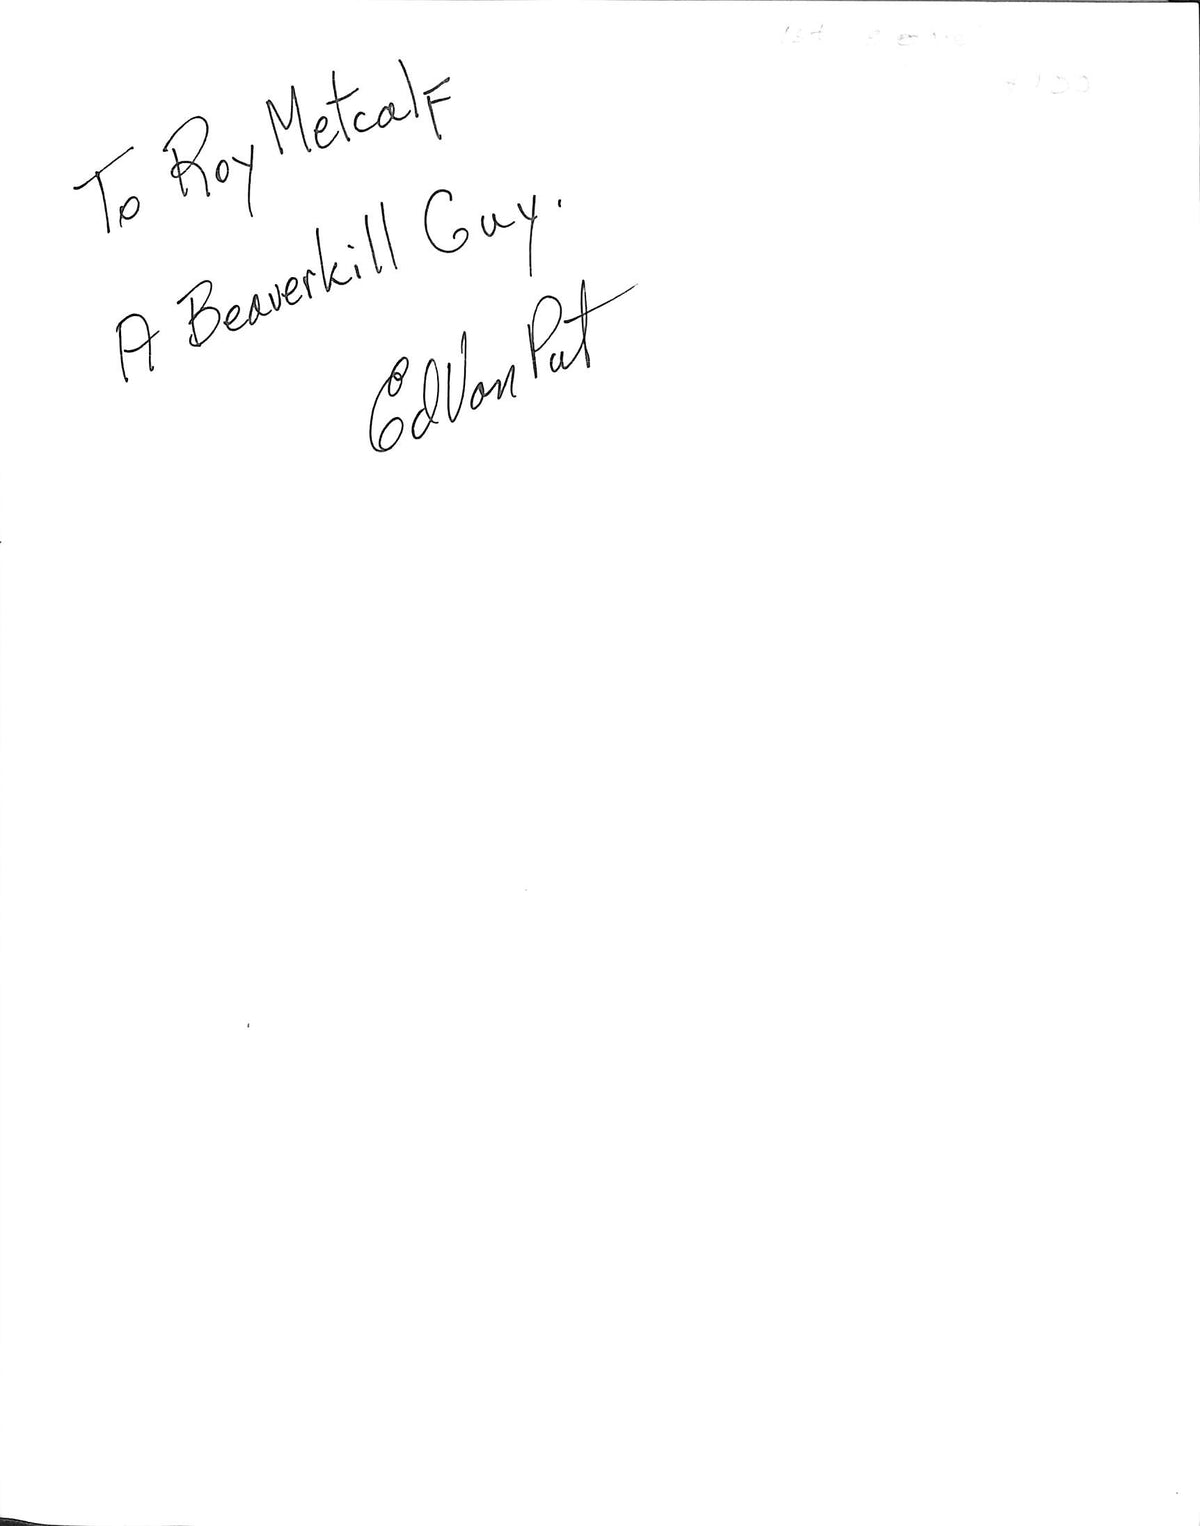 To Roy Metcalf
A Beaverkill Guy.
Ed Van Put